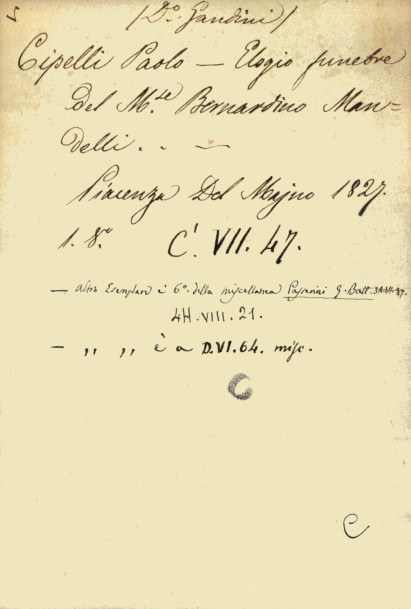 (D.º Gandini)
Cipelli Paolo — Elogio funebre
del M.se Bernardino Man=
delli. . —
Piacenza Del Majno 1827.
1. 8.º C'. VII. 47.
— altro Esemplare è 6º. della miscellanea Passerini G. Batt. 3A.VI.37.
4H.VIII.21.
— ,, ,, è a D.VI.64. misc.
C
C